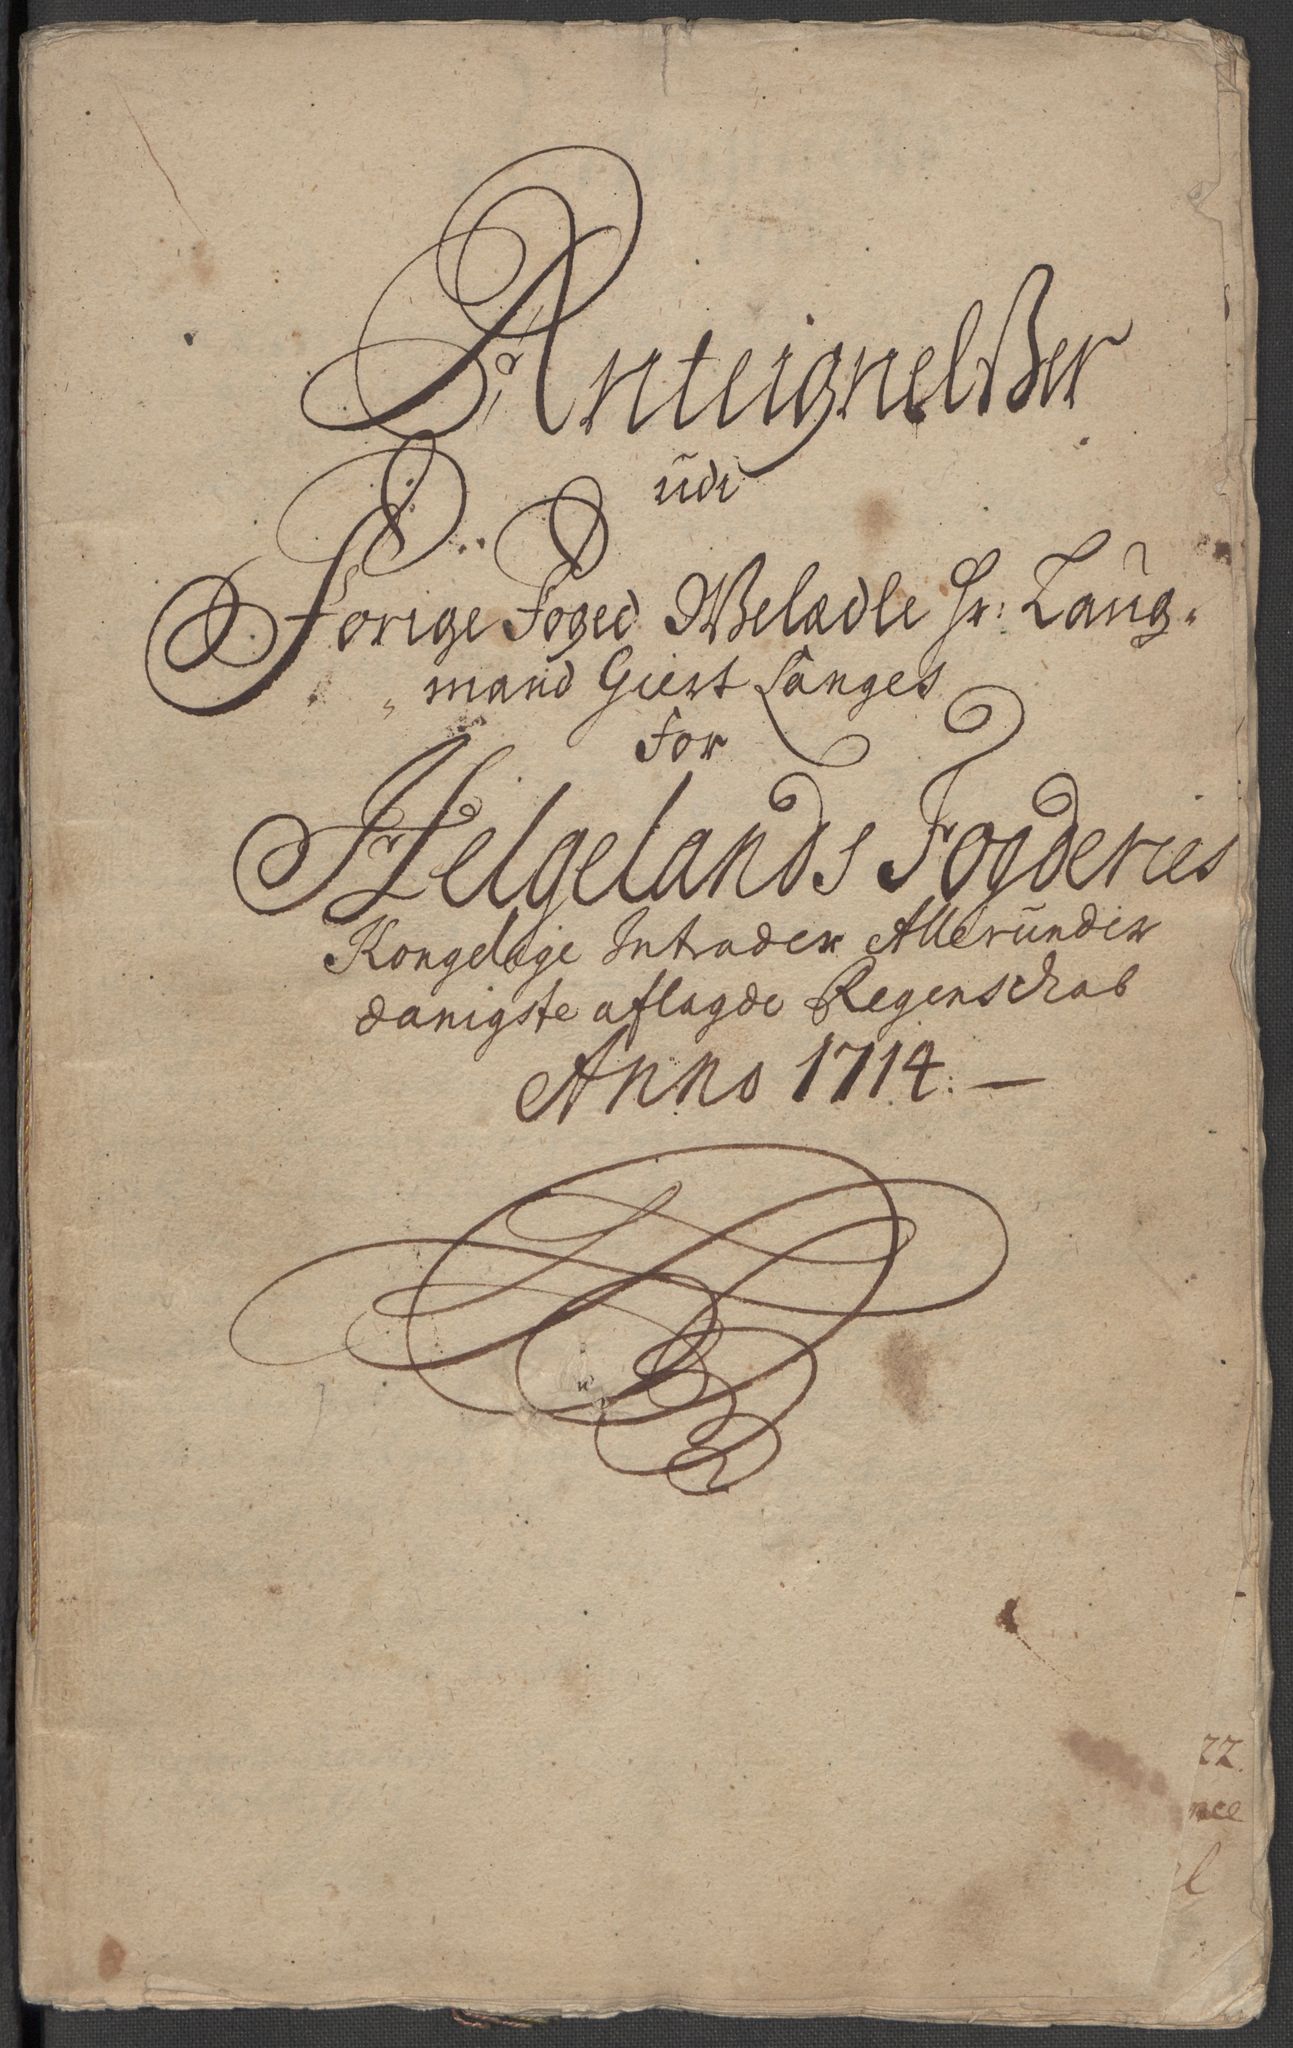 Anteignelßer
udi
Forige Foged Welædle Hr: Laug-
mand Giert Langes
For
Helgelands Fogderies
Kongelige Intrader Allerunder
danigste aflagde Regenschab
Anno 1714. —
22.
nce
l